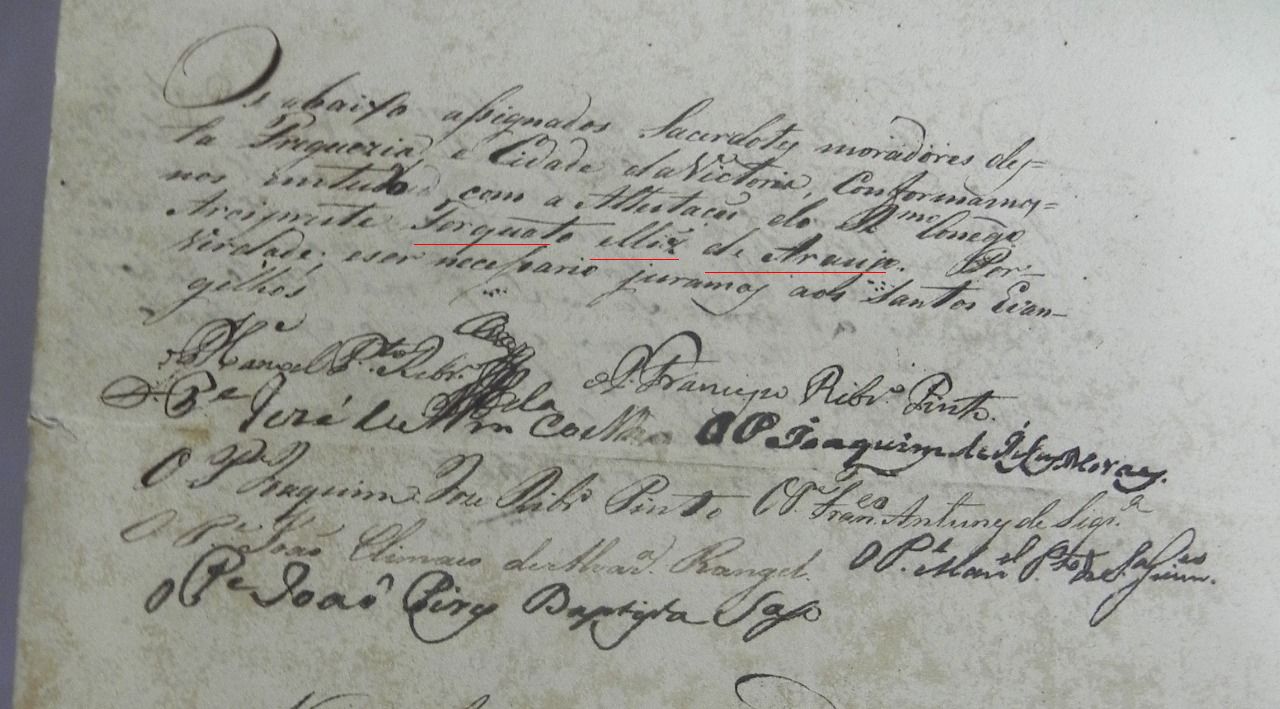 Os abaixo assignados Sacerdotes moradores des=
ta Freguezia, e Cidade da Victoria, Conformamos=
nos em tudo com a Attestação do Rmo Conego
Arcipreste Torquato Miz de Araujo. Por
verdade, e ser necessario juramos aos Santos Evan-
gelhos
Manoel Pto Ribro O P. Francisco Ribro Pinto.
O Pe José de Coelho O P Joaquim de Moraes.
O P Joaquim Joze Ribro Pinto O Pe Franco Antunes de Siqra
O Pe João Climaco de Alvarª Rangel. O Pe Manel
O Pe João Pires Baptista